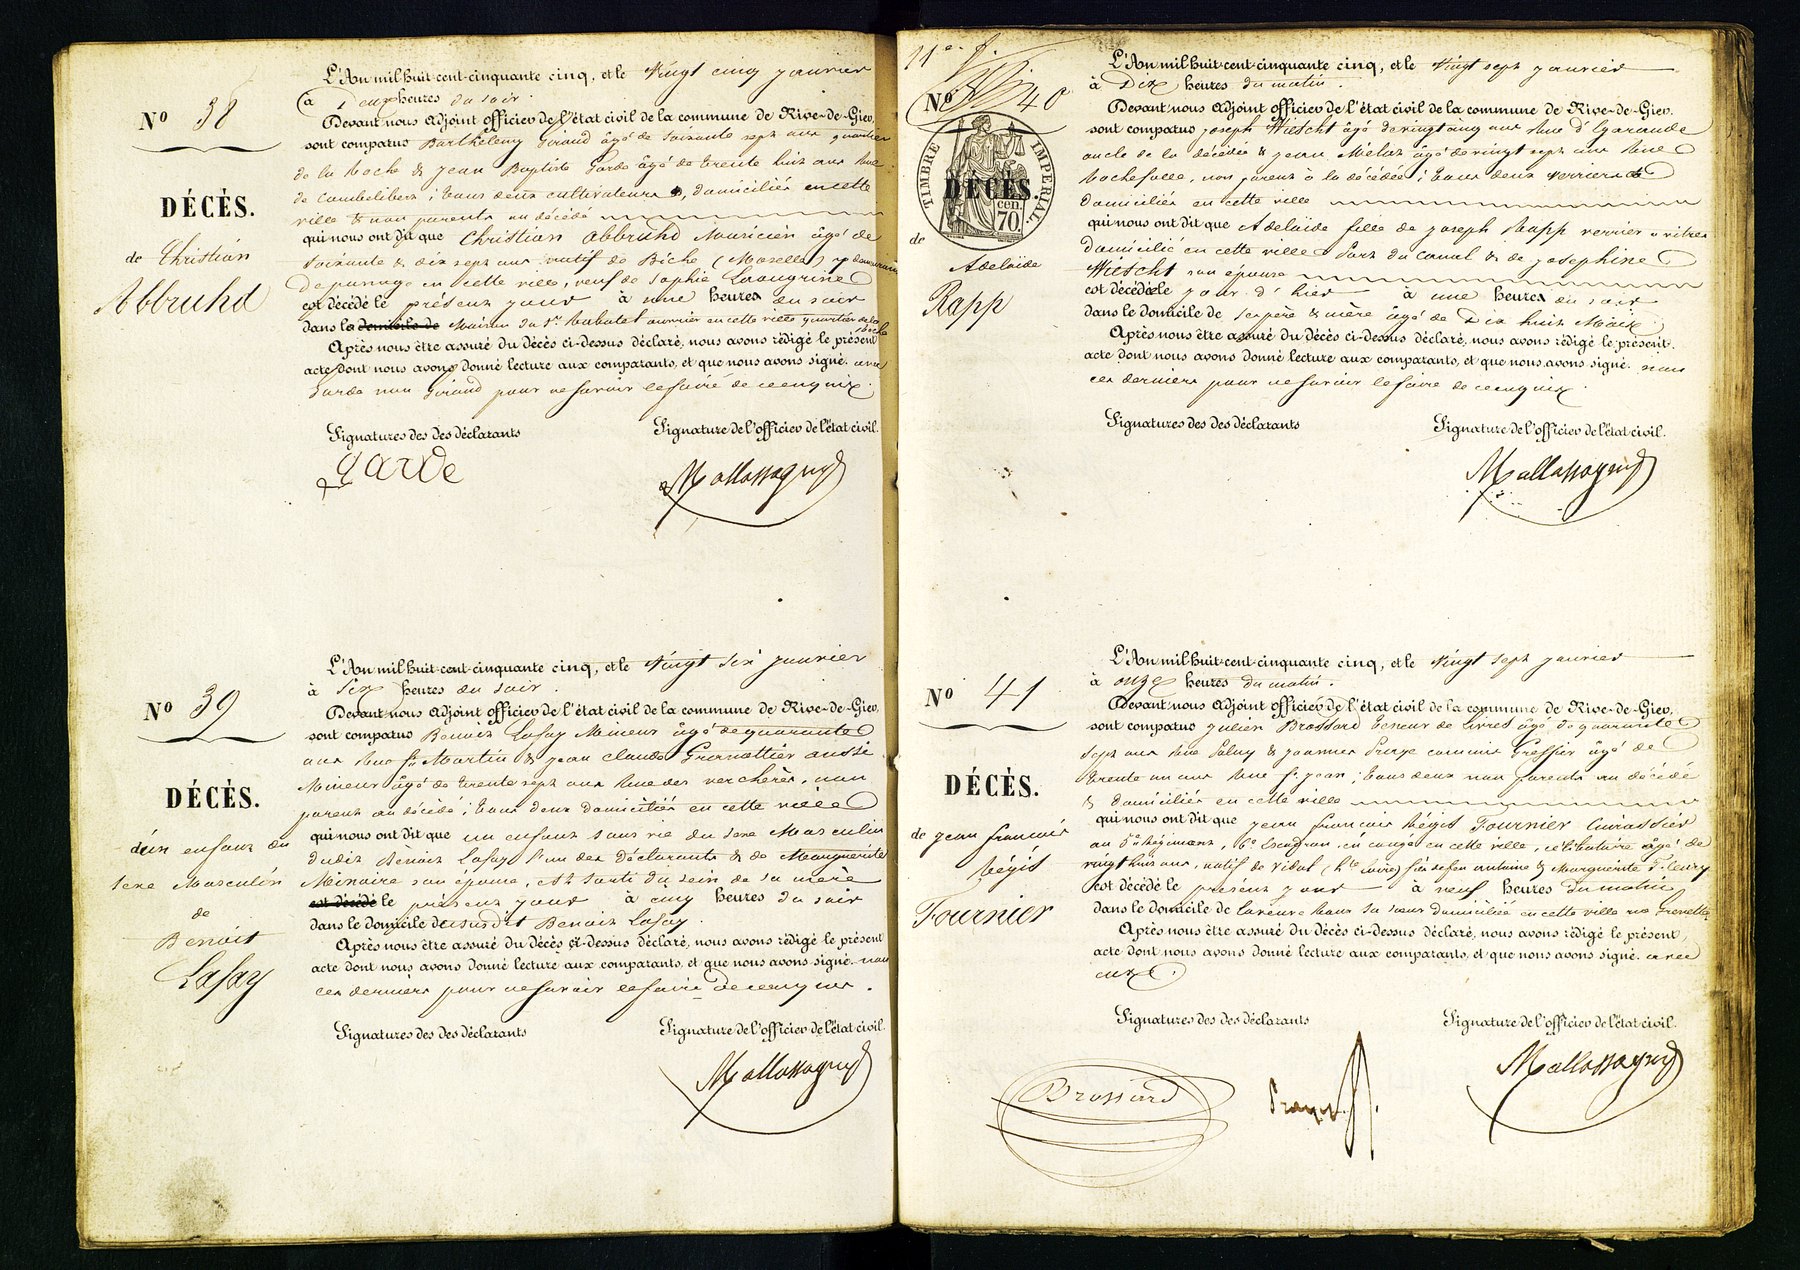 No 38
DÉCÈS.
de Christian
Abbruhd
L'An mil huit cent cinquante cinq, et le Vingt cinq janvier
à Deux heures du soir.
Devant nous Adjoint officier de l'état civil de la commune de Rive-de-Gier,
sont comparus Barthélemy Giraud âgé de soixante sept ans quartier
de la Roche & jean Baptiste Garde âgé de trente huit ans Rue
de Combelibert; tous deux cultivateurs, domiciliés en cette
ville & non parents au décédé
qui nous ont dit que Christian Abbruhd Musicien âgé de
soixante & dix sept ans natif de Biche (Moselle)
de passage en cette ville, veuf de Sophie
est décédé le présent jour à une heures du soir
dans le domicile de Maison du Sr. ouvrier en cette ville quartier de la Roche
Après nous être assuré du Décès ci-dessus déclaré, nous avons rédigé le présent
acte dont nous avons donné lecture aux comparants, et que nous avons signé. avec
Garde non Giraud pour ne savoir le faire de ce enquis.
Signatures des des déclarants
Signature de l'officier de l'état civil.
garde
Mallassagny
No 39
DÉCÈS.
d'un enfant du
sexe Masculin
de
Benoît
Lafay
L'An mil huit cent cinquante cinq, et le Vingt six janvier
à Six heures du soir.
Devant nous Adjoint officier de l'état civil de la commune de Rive-de-Gier,
sont comparus Benoit Lafay Mineur âgé de quarante
ans Rue St Martin & jean claude aussi
Mineur âgé de trente sept ans Rue des verchères, non
parent au décédé; tous deux domiciliés en cette ville
qui nous ont dit que un enfant sans vie du sexe Masculin
dudit Benoit Lafay l'un des déclarants & de Marguerite
son épouse, est sorti du sein de sa mère
est décédé le présent jour à cinq heures du soir
dans le domicile de susdit Benoit Lafay.
Après nous être assuré du Décès ci-dessus déclaré, nous avons rédigé le présent
acte dont nous avons donné lecture aux comparants, et que nous avons signé. non
ces derniers pour ne savoir le faire de ce enquis.
Signatures des des déclarants
Signature de l'officier de l'état civil.
Mallassagny
11e f.
No 40
TIMBRE IMPÉRIAL
cen. 70
DÉCÈS.
de
Adelaïde
Rapp
L'An mil huit cent cinquante cinq, et le Vingt sept janvier
à Dix heures du matin.
Devant nous Adjoint officier de l'état civil de la commune de Rive-de-Gier,
sont comparus joseph Wiescht âgé de vingt cinq ans Rue d'Egarande
oncle de la décédée & jean âgé de vingt sept ans Rue
non parent à la décédée; tous deux verriers &
domiciliés en cette ville
qui nous ont dit que Adelaïde fille de joseph Rapp verrier à vitres
domicilié en cette ville Port du Canal & de josephine
Wiescht son épouse
est décédée le jour d'hier à une heures du soir
dans le domicile de ses père & mère âgé de Dix huit Mois.
Après nous être assuré du Décès ci-dessus déclaré, nous avons rédigé le présent,
acte dont nous avons donné lecture aux comparants, et que nous avons signé. non
ces derniers pour ne savoir le faire de ce enquis.
Signatures des des déclarants
Signature de l'officier de l'état civil.
Mallassagny
No 41
DÉCÈS.
de jean françois
Régis
Fournier
L'An mil huit cent cinquante cinq, et le Vingt sept janvier
à onze heures du matin.
Devant nous Adjoint officier de l'état civil de la commune de Rive-de-Gier,
sont comparus julien Brossard teneur de Livres âgé de quarante
sept ans Rue Paluy & commis Greffier âgé de
trente un ans Rue St. jean; tous deux non parents au décédé
& domiciliés en cette ville
qui nous ont dit que jean françois Régis Fournier Cuirassier
au 5e Régiment, 6e Escadron, en congé en cette ville, célibataire âgé de
vingt huit ans, natif de (hte Loire) fils de feu antoine & Marguerite Fleury
est décédé le présent jour à neuf heures du matin
dans le domicile de la veuve sa sœur domiciliée en cette ville rue Grenette
Après nous être assuré du Décès ci-dessus déclaré, nous avons rédigé le présent,
acte dont nous avons donné lecture aux comparants, et que nous avons signé. avec
eux.
Signatures des des déclarants
Signature de l'officier de l'état civil.
Brossard
Mallassagny